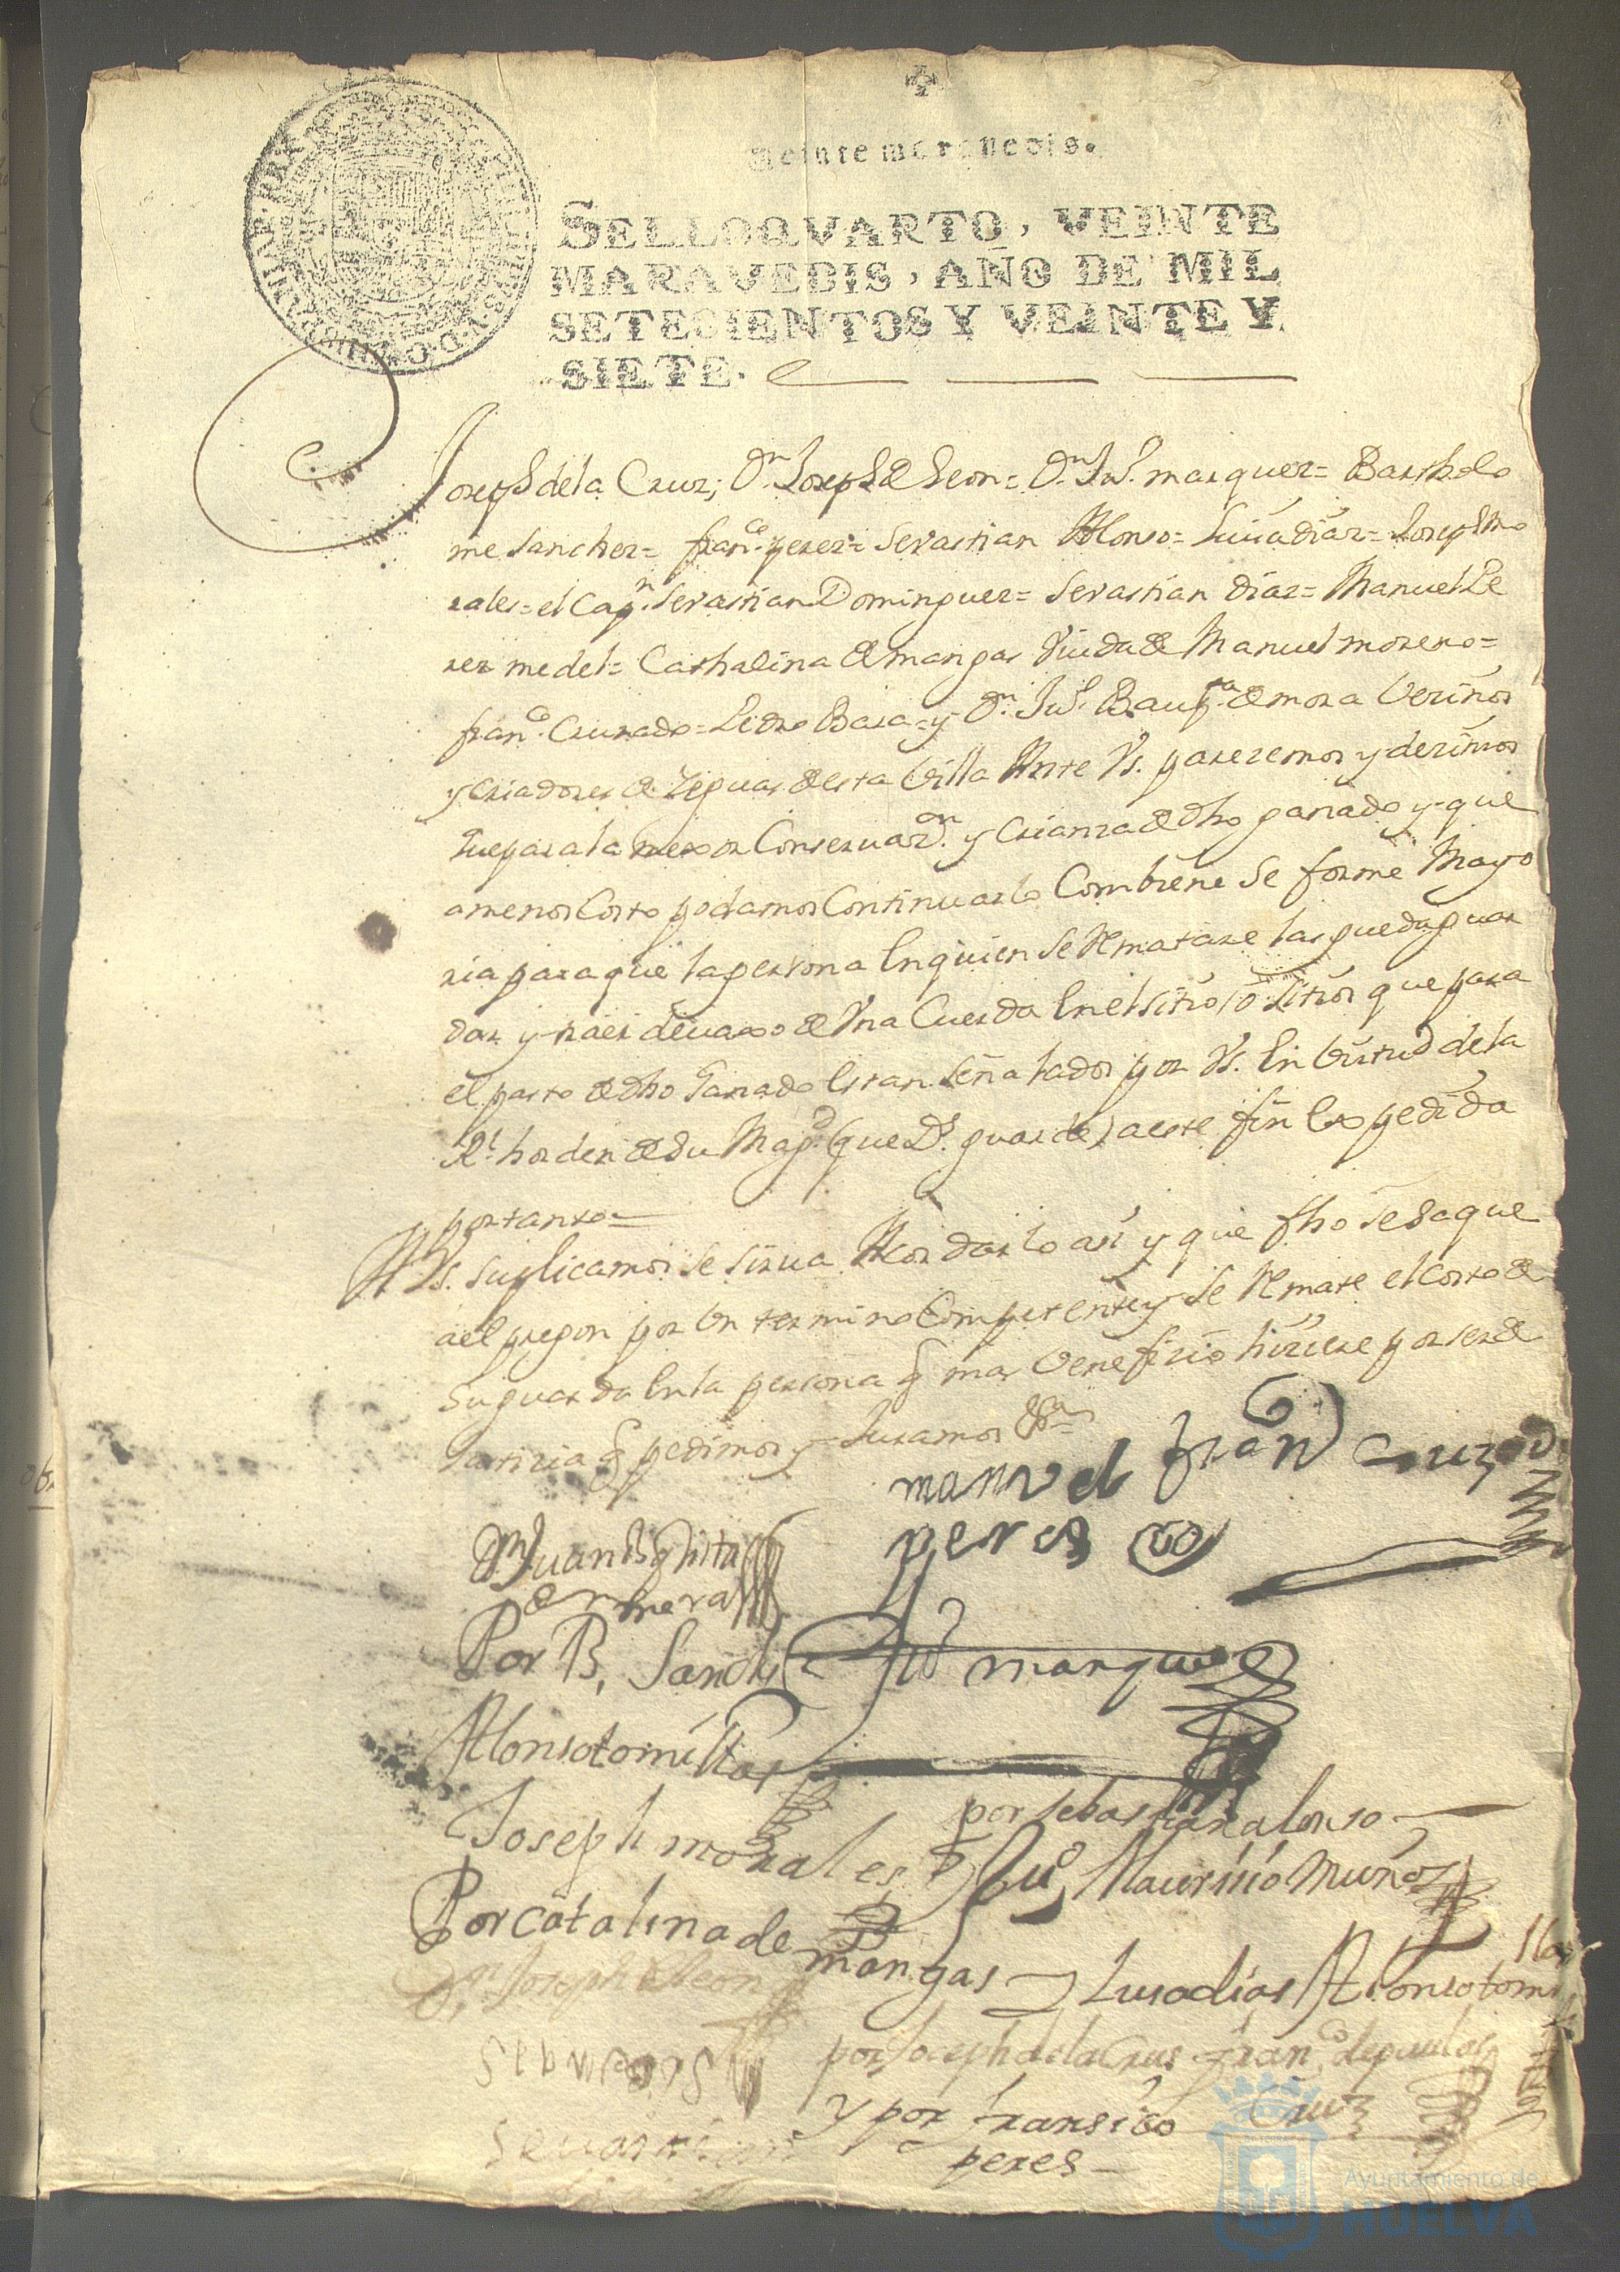 Veinte maravedis.
SELLO QVARTO, VEINTE
MARAVEDIS, AÑO DE MIL
SETECIENTOS Y VEINTE Y
SIETE.
Joseph de la Cruz; Dn. Joseph de Leon = Dn. Juo. marquez = Barthalo
me sanchez = Franco. perez = Sevastian Alonso = Lucia diaz = Joseph Mo
rales = el Capn. Sevastian Dominguez = Sevastian diaz = Manuel Pe
rez medel = Cathalina de mangas Viuda de Manuel moreno =
franco. Cruzado = Pedro Baza = y Dn. Juo. Bauta. de mora Vezinos
y Criadores de Yeguas desta Villa Ante Vs. parezemos y dezimos
que para la mexor Conservazon. y Crianza de dho ganado y que
a menos Costo podamos Continuarlo Combiene se forme Mayo
ria para que la persona en quien se Rematare las pueda guar
dar y traer devaxo de Vna Cuerda en el sitio, o sitios que para
el pasto de dho Ganado estan señalados por Vs. En virtud de la
Rl. horden de su Magd. (que Ds. guarde) a este fin expedida
portanto =
A Vs. suplicamos se sirva Acordarlo asi y que fho se saque
a el pregon por Un termino Competente y se Remate el Costo de
su guarda en la persona q mas Venefizio hiziere por ser de
Justizia q pedimos y Juramos &a
manuel perez
fran Cruzado
Dn Juan Bphta
de mora
Por B, Sanchz
Juo marquez
Alonso tomillar
Joseph morales
por sebastian alonso
Juo, Mauricio Muños
Por catalina de mangas
Lucadias Alonso tomillar
Dn. Joseph de Leon
por Joseph de la Crus Franco. de paula
Cruz
y por fransico
peres
sevastian
Ayuntamiento de
HUELVA